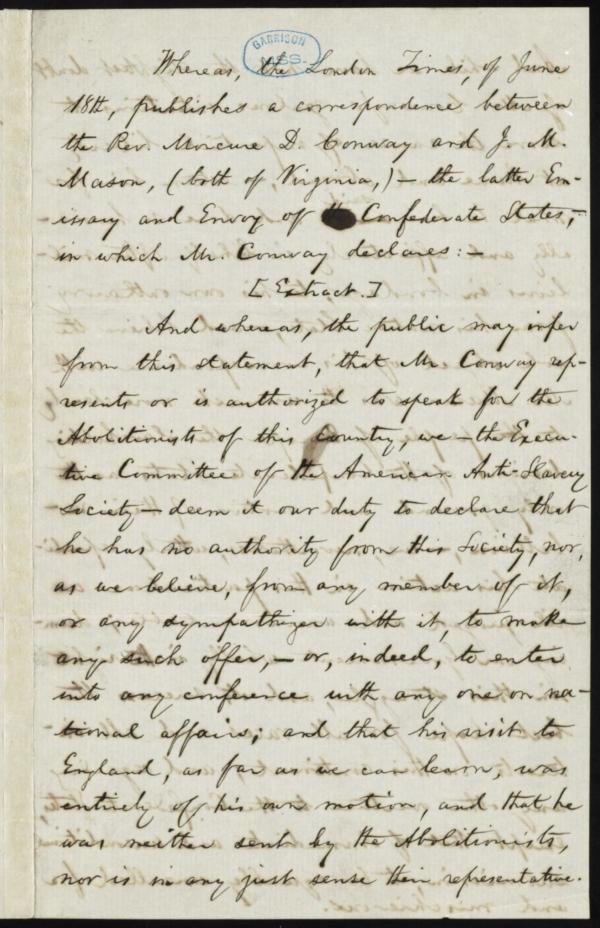 GARRISON
MSS.
Whereas, the London Times, of June
18th, publishes a correspondence between
the Rev. Moncure D. Conway and J. M.
Mason, (both of Virginia,) — the latter Em-
issary and Envoy of the Confederate States,
in which Mr. Conway declares: —
[Extract.]
And whereas, the public may infer
from this statement, that Mr. Conway rep-
resents or is authorized to speak for the
Abolitionists of this country, we — the Execu-
tive Committee of the American Anti-Slavery
Society — deem it our duty to declare that
he has no authority from this Society, nor,
as we believe, from any member of it,
or any sympathizer with it, to make
any such offer, — or, indeed, to enter
into any conference with any one on na-
tional affairs; and that his visit to
England, as far as we can learn, was
entirely of his own motion, and that he
was neither sent by the Abolitionists,
nor is in any just sense their representative.